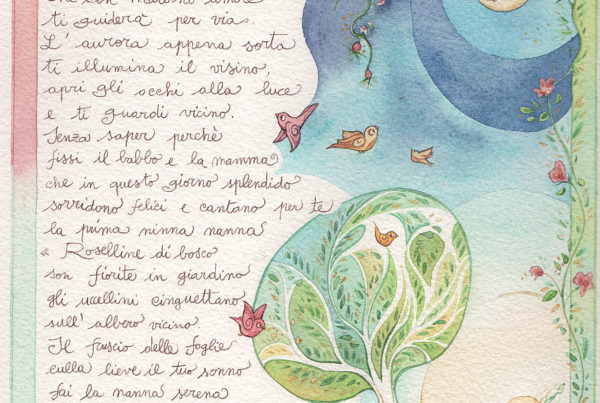 che con materno amore
ti guiderà per via.
L'aurora appena sorta
ti illumina il visino,
apri gli occhi alla luce
e ti guardi vicino.
Senza saper perchè
fissi il babbo e la mamma
che in questo giorno splendido
sorridono felici e cantano per te
la prima ninna nanna
« Roselline di bosco
son fiorite in giardino
gli uccellini cinguettano
sull'albero vicino.
Il fruscio delle foglie
culla lieve il tuo sonno
fai la nanna serena